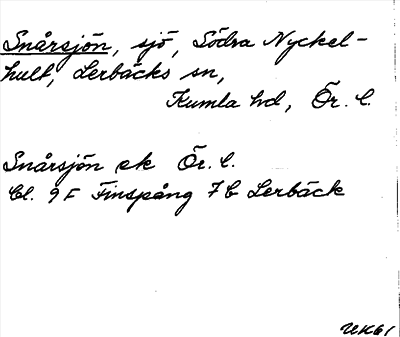 Snårsjön, sjö, Södra Nyckel-
hult, Lerbäcks sn,
Kumla hd, Ör. l.
Snårsjön ek Ör. l.
Bl. 9 F Finspång 7 b Lerbäck
UK61